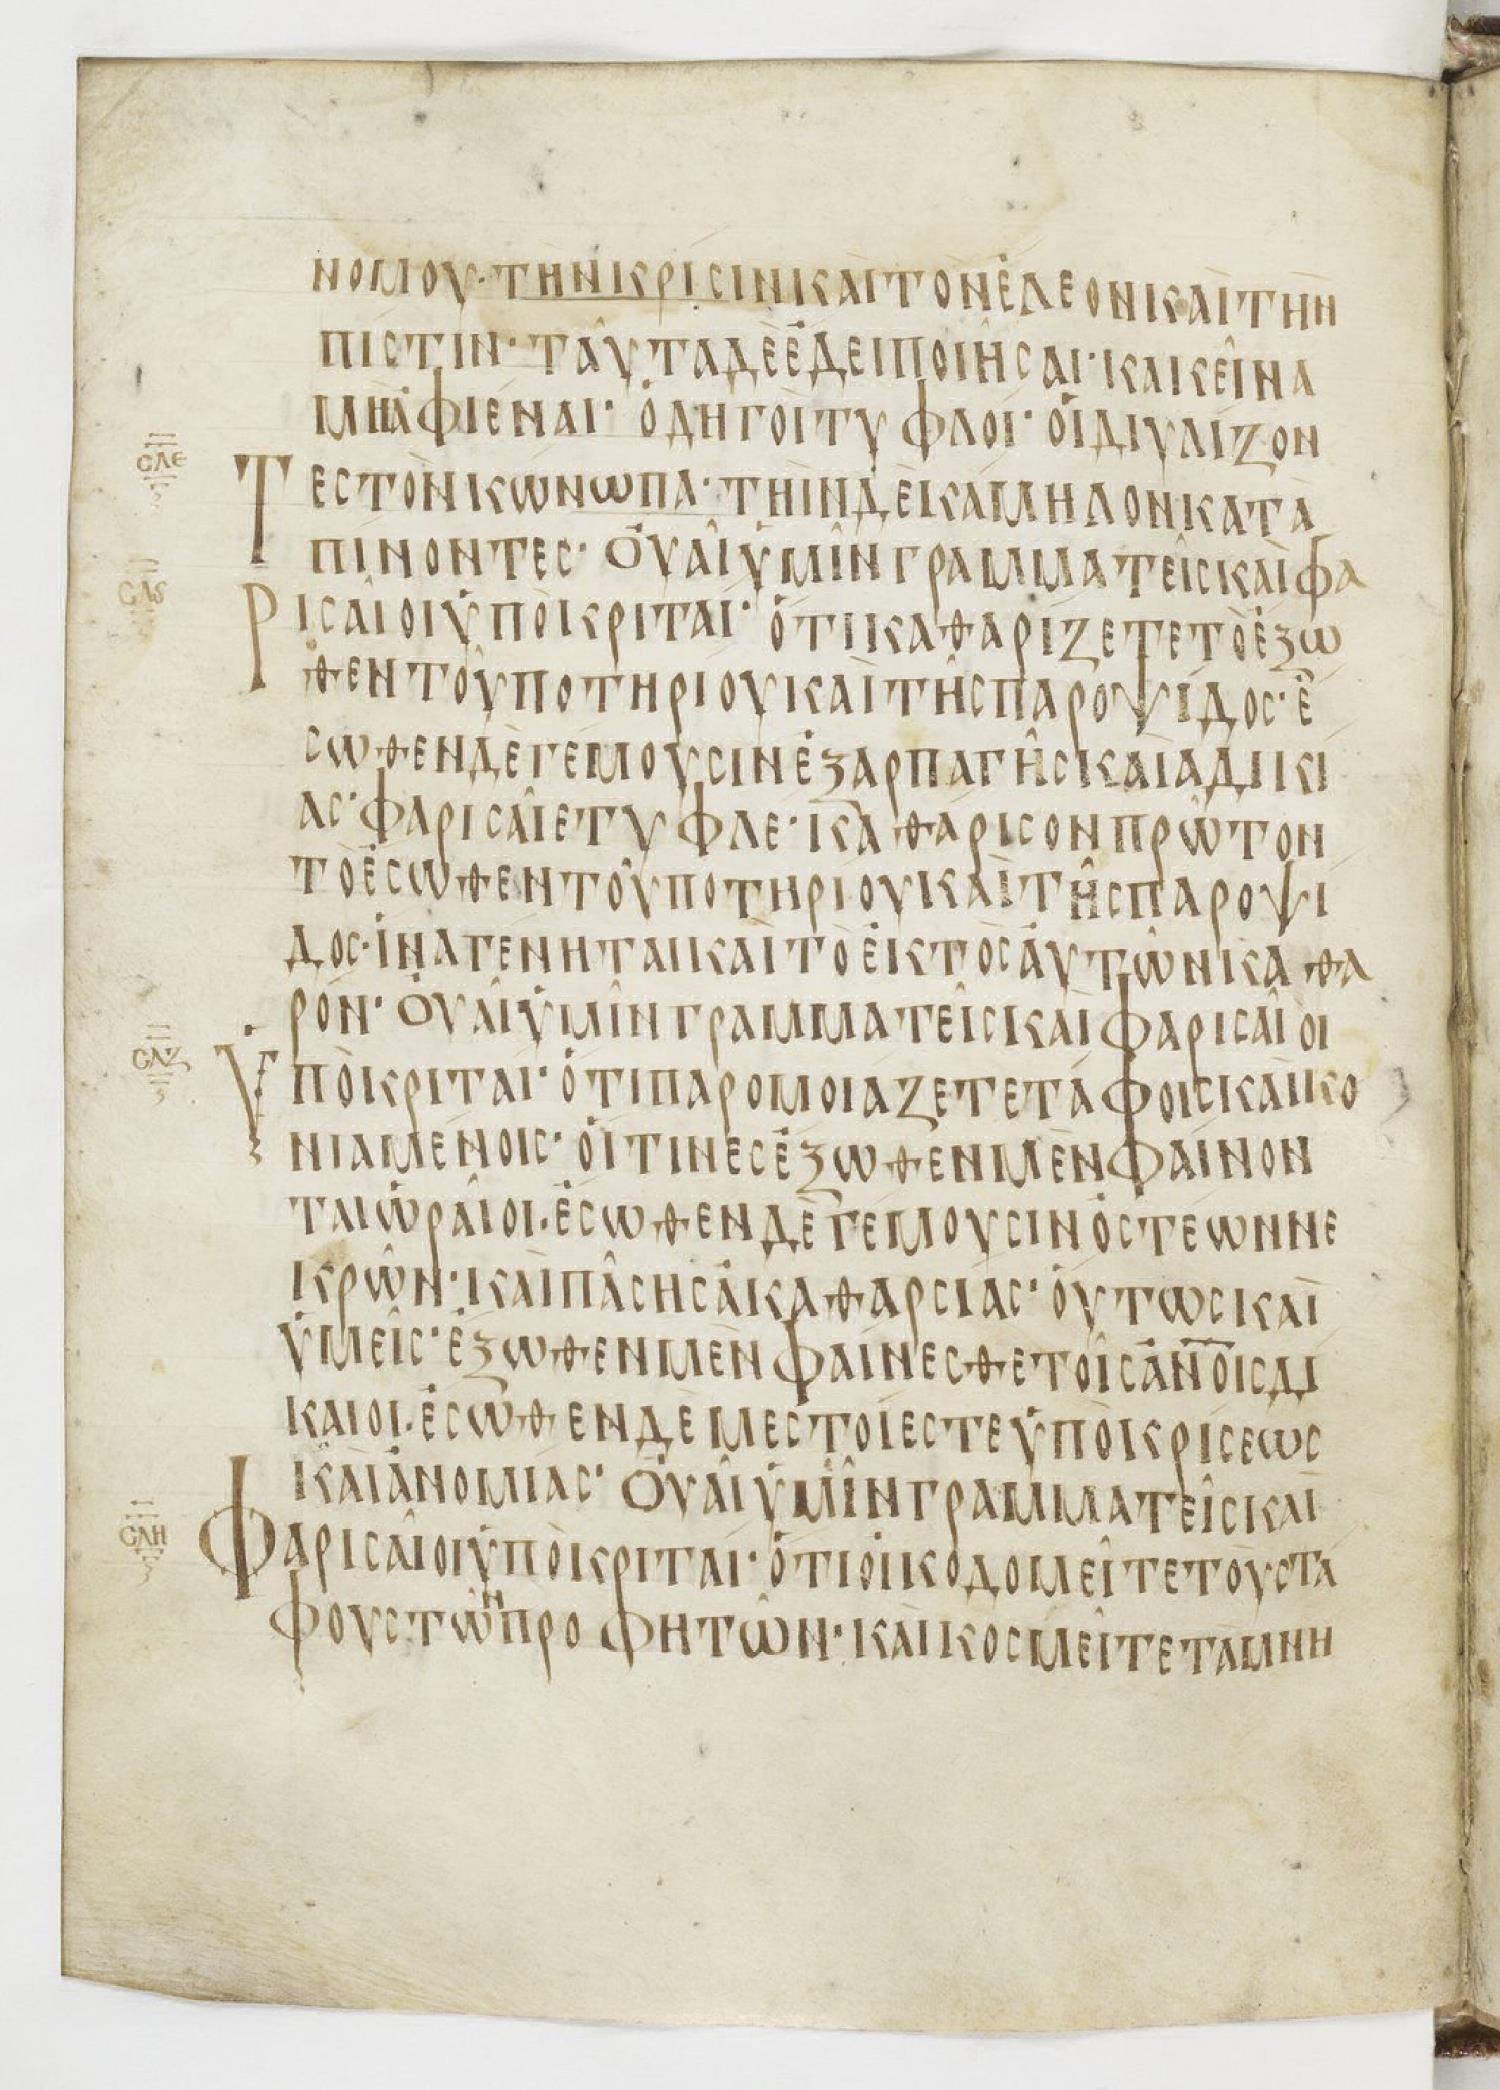 ΝΟΜΟΥ· ΤΗΝ ΚΡΙСΙΝ ΚΑΙ ΤΟΝ ΕΛΕΟΝ ΚΑΙ ΤΗΝ
ΠΙСΤΙΝ· ΤΑΥΤΑ ΔΕ ΕΔΕΙ ΠΟΙΗСΑΙ· ΚΑΚΕΙΝΑ
ΜΗ ΑΦΙΕΝΑΙ· ΟΔΗΓΟΙ ΤΥΦΛΟΙ· ΟΙ ΔΙΥΛΙΖΟΝ
СΛΕ
ΤΕС ΤΟΝ ΚΩΝΩΠΑ· ΤΗΝ ΔΕ ΚΑΜΗΛΟΝ ΚΑΤΑ
ΠΙΝΟΝΤΕС· ΟΥΑΙ ΥΜΙΝ ΓΡΑΜΜΑΤΕΙС ΚΑΙ ΦΑ
СΛϚ
ΡΙСΑΙΟΙ ΥΠΟΚΡΙΤΑΙ· ΟΤΙ ΚΑΘΑΡΙΖΕΤΕ ΤΟ ΕΞΩ
ΘΕΝ ΤΟΥ ΠΟΤΗΡΙΟΥ ΚΑΙ ΤΗС ΠΑΡΟΨΙΔΟС· Ε
СΩΘΕΝ ΔΕ ΓΕΜΟΥСΙΝ ΕΞ ΑΡΠΑΓΗС ΚΑΙ ΑΔΙΚΙ
ΑС· ΦΑΡΙСΑΙΕ ΤΥΦΛΕ· ΚΑΘΑΡΙСΟΝ ΠΡΩΤΟΝ
ΤΟ ΕСΩΘΕΝ ΤΟΥ ΠΟΤΗΡΙΟΥ ΚΑΙ ΤΗС ΠΑΡΟΨΙ
ΔΟС· ΙΝΑ ΓΕΝΗΤΑΙ ΚΑΙ ΤΟ ΕΚΤΟС ΑΥΤΩΝ ΚΑΘΑ
ΡΟΝ· ΟΥΑΙ ΥΜΙΝ ΓΡΑΜΜΑΤΕΙС ΚΑΙ ΦΑΡΙСΑΙΟΙ
СΛΖ
ΥΠΟΚΡΙΤΑΙ· ΟΤΙ ΠΑΡΟΜΟΙΑΖΕΤΕ ΤΑΦΟΙС ΚΑΙ ΚΟ
ΝΙΑΜΕΝΟΙС· ΟΙΤΙΝΕС ΕΞΩΘΕΝ ΜΕΝ ΦΑΙΝΟΝ
ΤΑΙ ΩΡΑΙΟΙ· ΕСΩΘΕΝ ΔΕ ΓΕΜΟΥСΙΝ ΟСΤΕΩΝ ΝΕ
ΚΡΩΝ· ΚΑΙ ΠΑСΗС ΑΚΑΘΑΡСΙΑС· ΟΥΤΩС ΚΑΙ
ΥΜΕΙС· ΕΞΩΘΕΝ ΜΕΝ ΦΑΙΝΕСΘΕ ΤΟΙС ΑΝΟΙС ΔΙ
ΚΑΙΟΙ· ΕСΩΘΕΝ ΔΕ ΜΕСΤΟΙ ΕСΤΕ ΥΠΟΚΡΙСΕΩС
ΚΑΙ ΑΝΟΜΙΑС· ΟΥΑΙ ΥΜΙΝ ΓΡΑΜΜΑΤΕΙС ΚΑΙ
СΛΗ
ΦΑΡΙСΑΙΟΙ ΥΠΟΚΡΙΤΑΙ· ΟΤΙ ΟΙΚΟΔΟΜΕΙΤΕ ΤΟΥС ΤΑ
ΦΟΥС ΤΩΝ ΠΡΟΦΗΤΩΝ· ΚΑΙ ΚΟСΜΕΙΤΕ ΤΑ ΜΝΗ